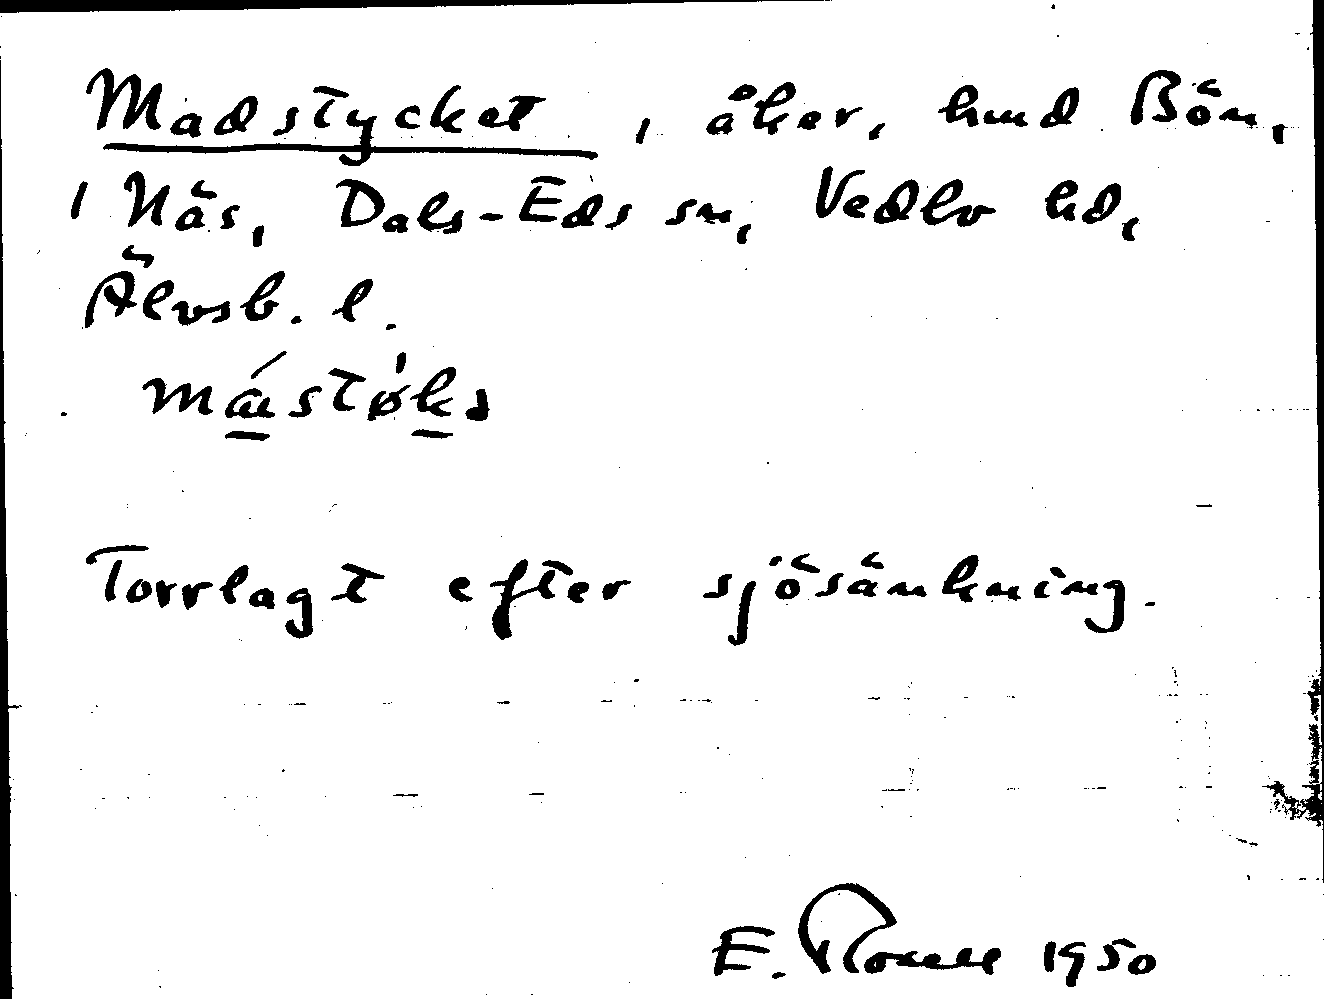 Madstycket, åker, hmd Bön,
1 Näs, Dals-Eds sn, Vedbo hd,
Älvsb. l.
Torrlagt efter sjösänkning.
E. 1950